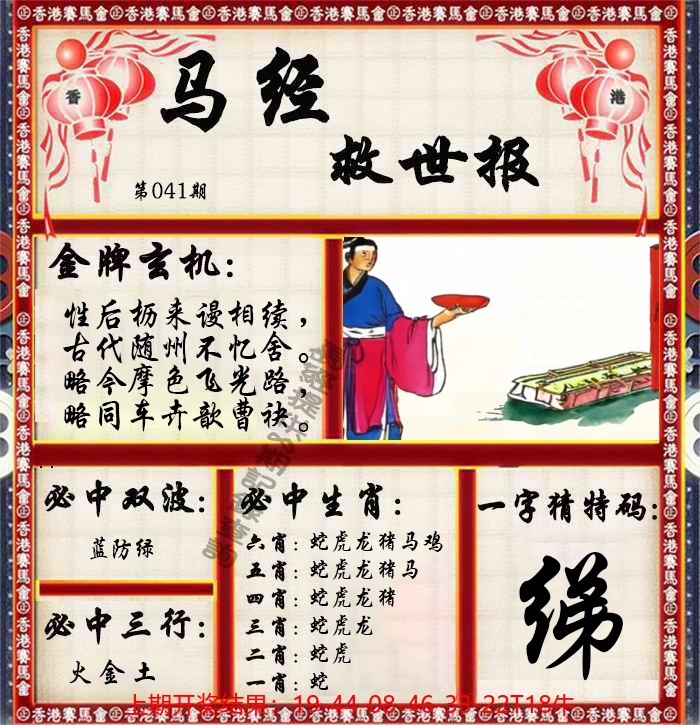 香港賽馬會
香
港
马经
救世报
第041期
金牌玄机：
性后枥来谩相续，
古代随州不忆舍。
略今摩色飞光路，
略同车卉歆曹袂。
必中双波：
蓝防绿
必中三行：
火金土
必中生肖：
六肖：蛇虎龙猪马鸡
五肖：蛇虎龙猪马
四肖：蛇虎龙猪
三肖：蛇虎龙
二肖：蛇虎
一肖：蛇
一字猜特码：
绨
上期开奖结果：19-44-08-46-33-22T18牛